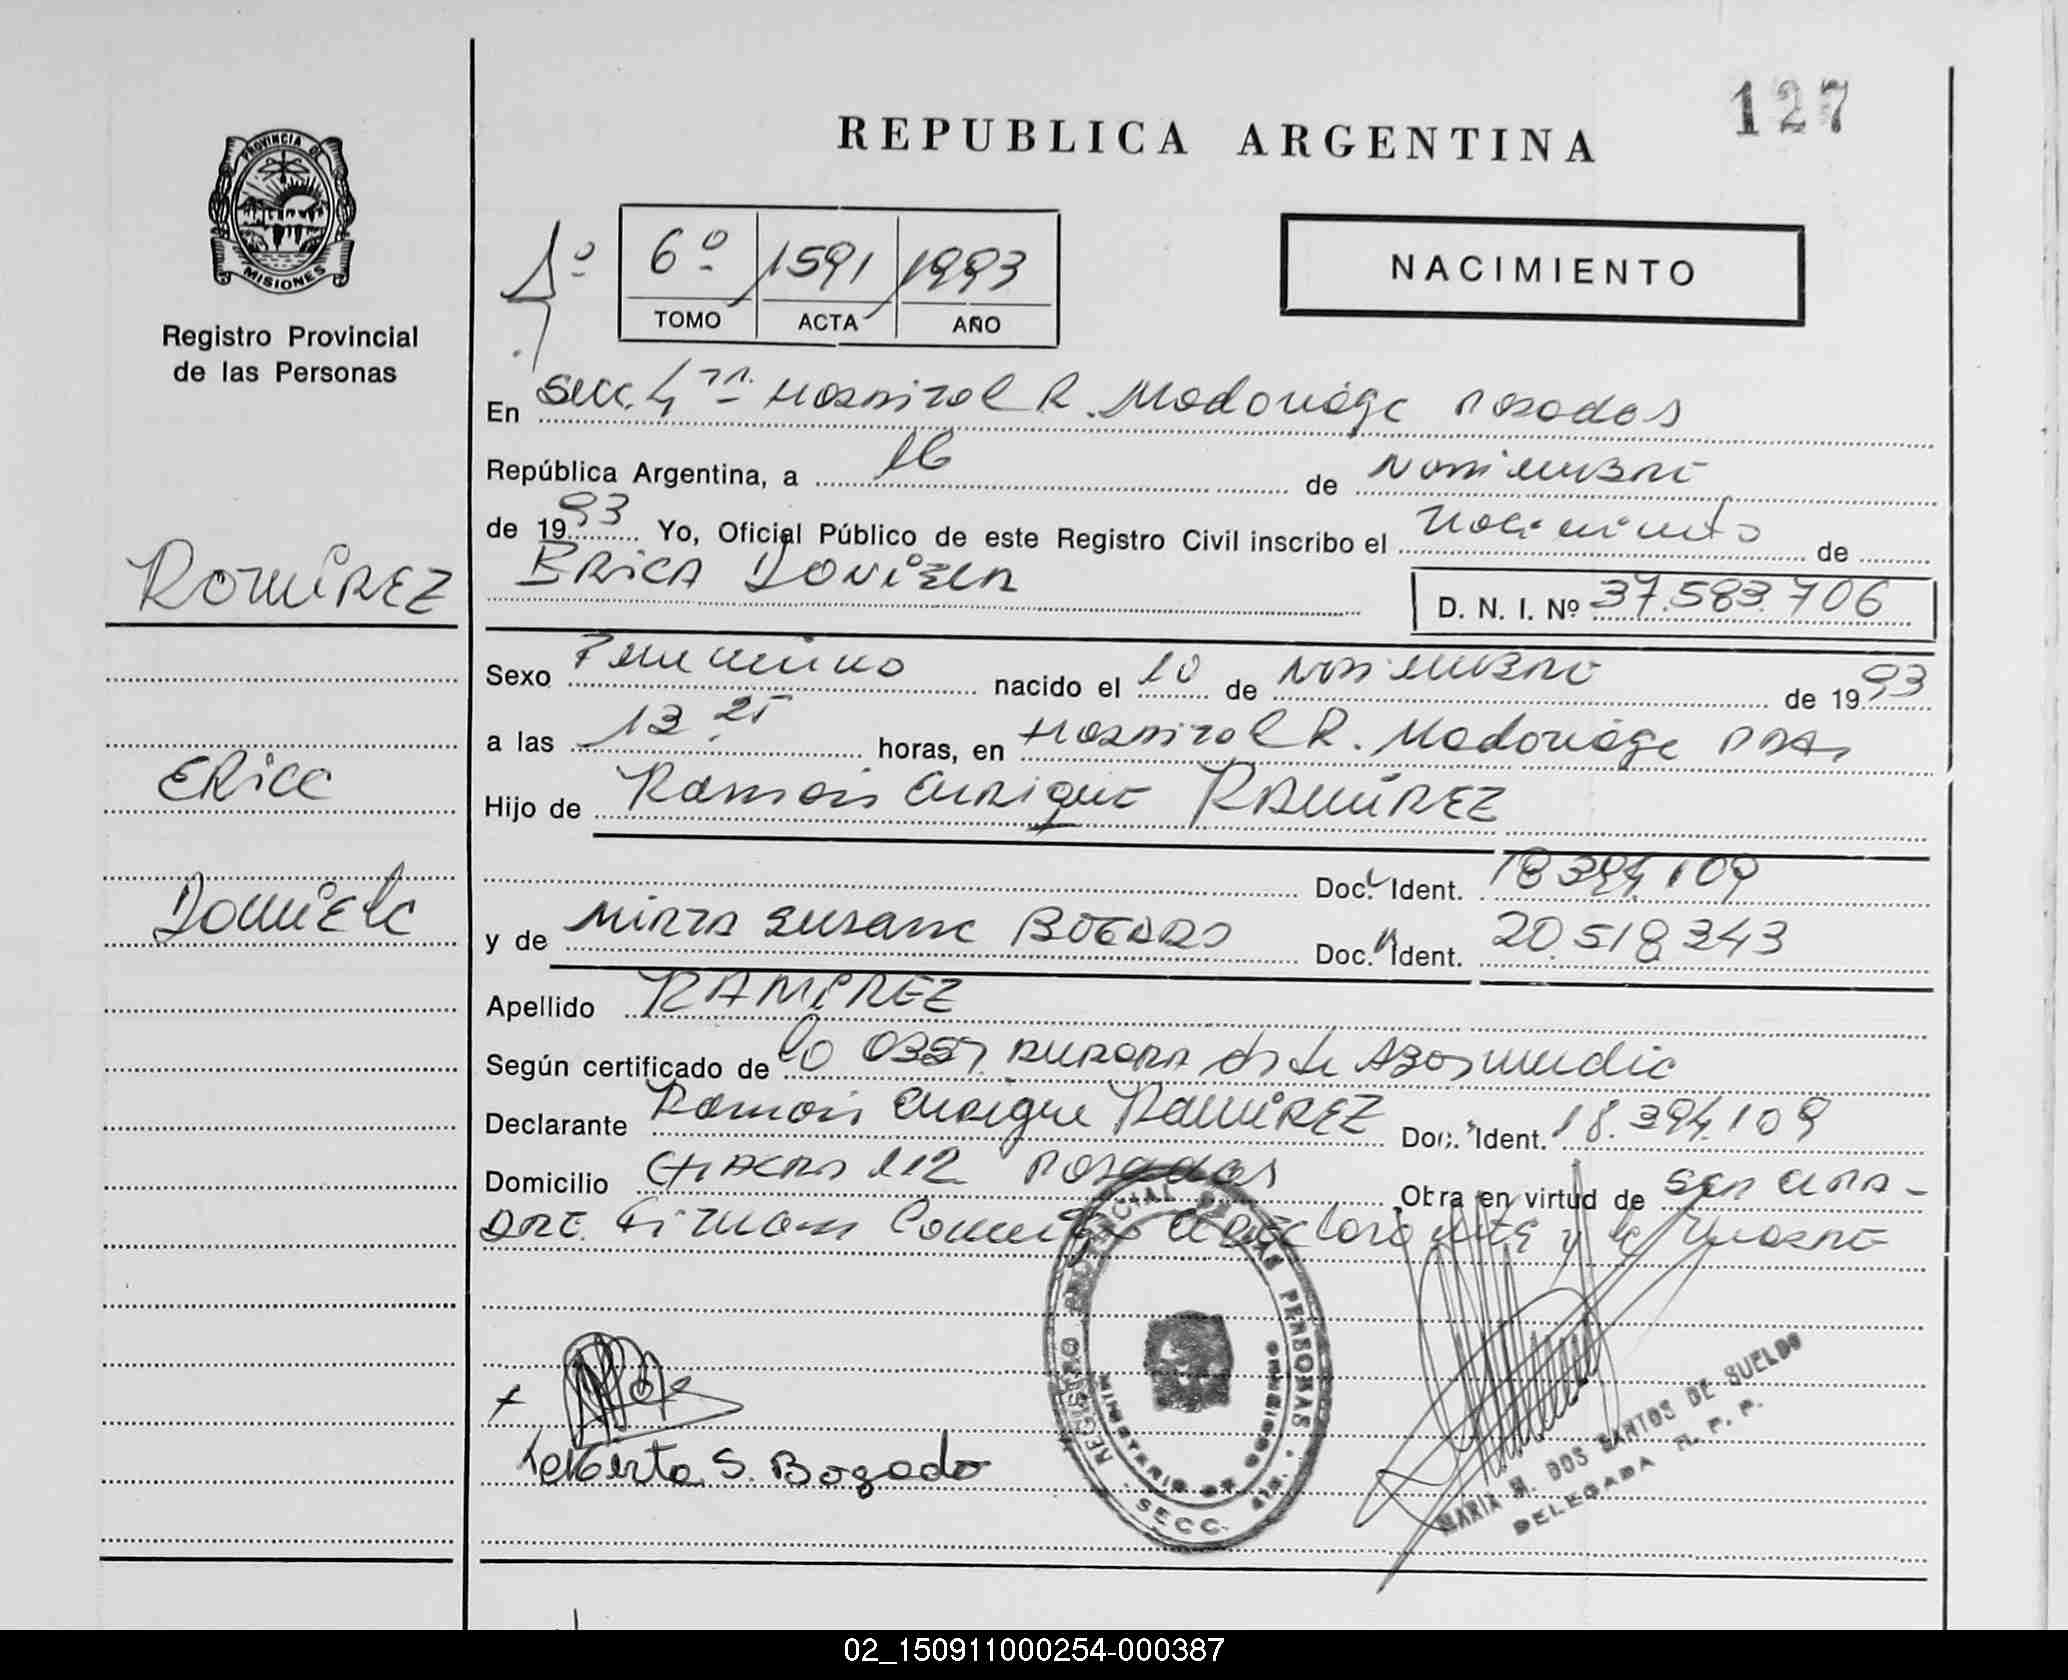 127
REPUBLICA ARGENTINA
PROVINCIA DE
MISIONES
Registro Provincial
de las Personas
1º
6º 1591 1993
TOMO ACTA AÑO
NACIMIENTO
En Secc. 4ta Hospital R. Madariaga Posadas
República Argentina, a 16 de Noviembre
de 1993 Yo, Oficial Público de este Registro Civil inscribo el Nacimiento de
Erica Daniela
D. N. I. Nº 37.583.706
RAMÍREZ
Sexo Femenino nacido el 10 de Noviembre de 1993
a las 13.25 horas, en Hospital R. Madariaga Pdas
Erica
Hijo de Ramón Enrique RAMÍREZ
Doc. Ident. 18.394.109
Daniela
y de Mirta Susana BOGADO Doc. Ident. 20.518.343
Apellido RAMÍREZ
Según certificado de la Obst. Aurora de
Declarante Ramón Enrique RAMÍREZ Doc. Ident. 18.394.109
Domicilio Chacra 112 Posadas Obra en virtud de ser el pa-
dre. Firman Conmigo el declarante y la Madre
Mirta S. Bogado
REGISTRO PROVINCIAL DE LAS PERSONAS
MINISTERIO DE GOBIERNO
SECC.
MARIA M. DOS SANTOS DE SUELDO
DELEGADA R. P. P.
02_150911000254-000387